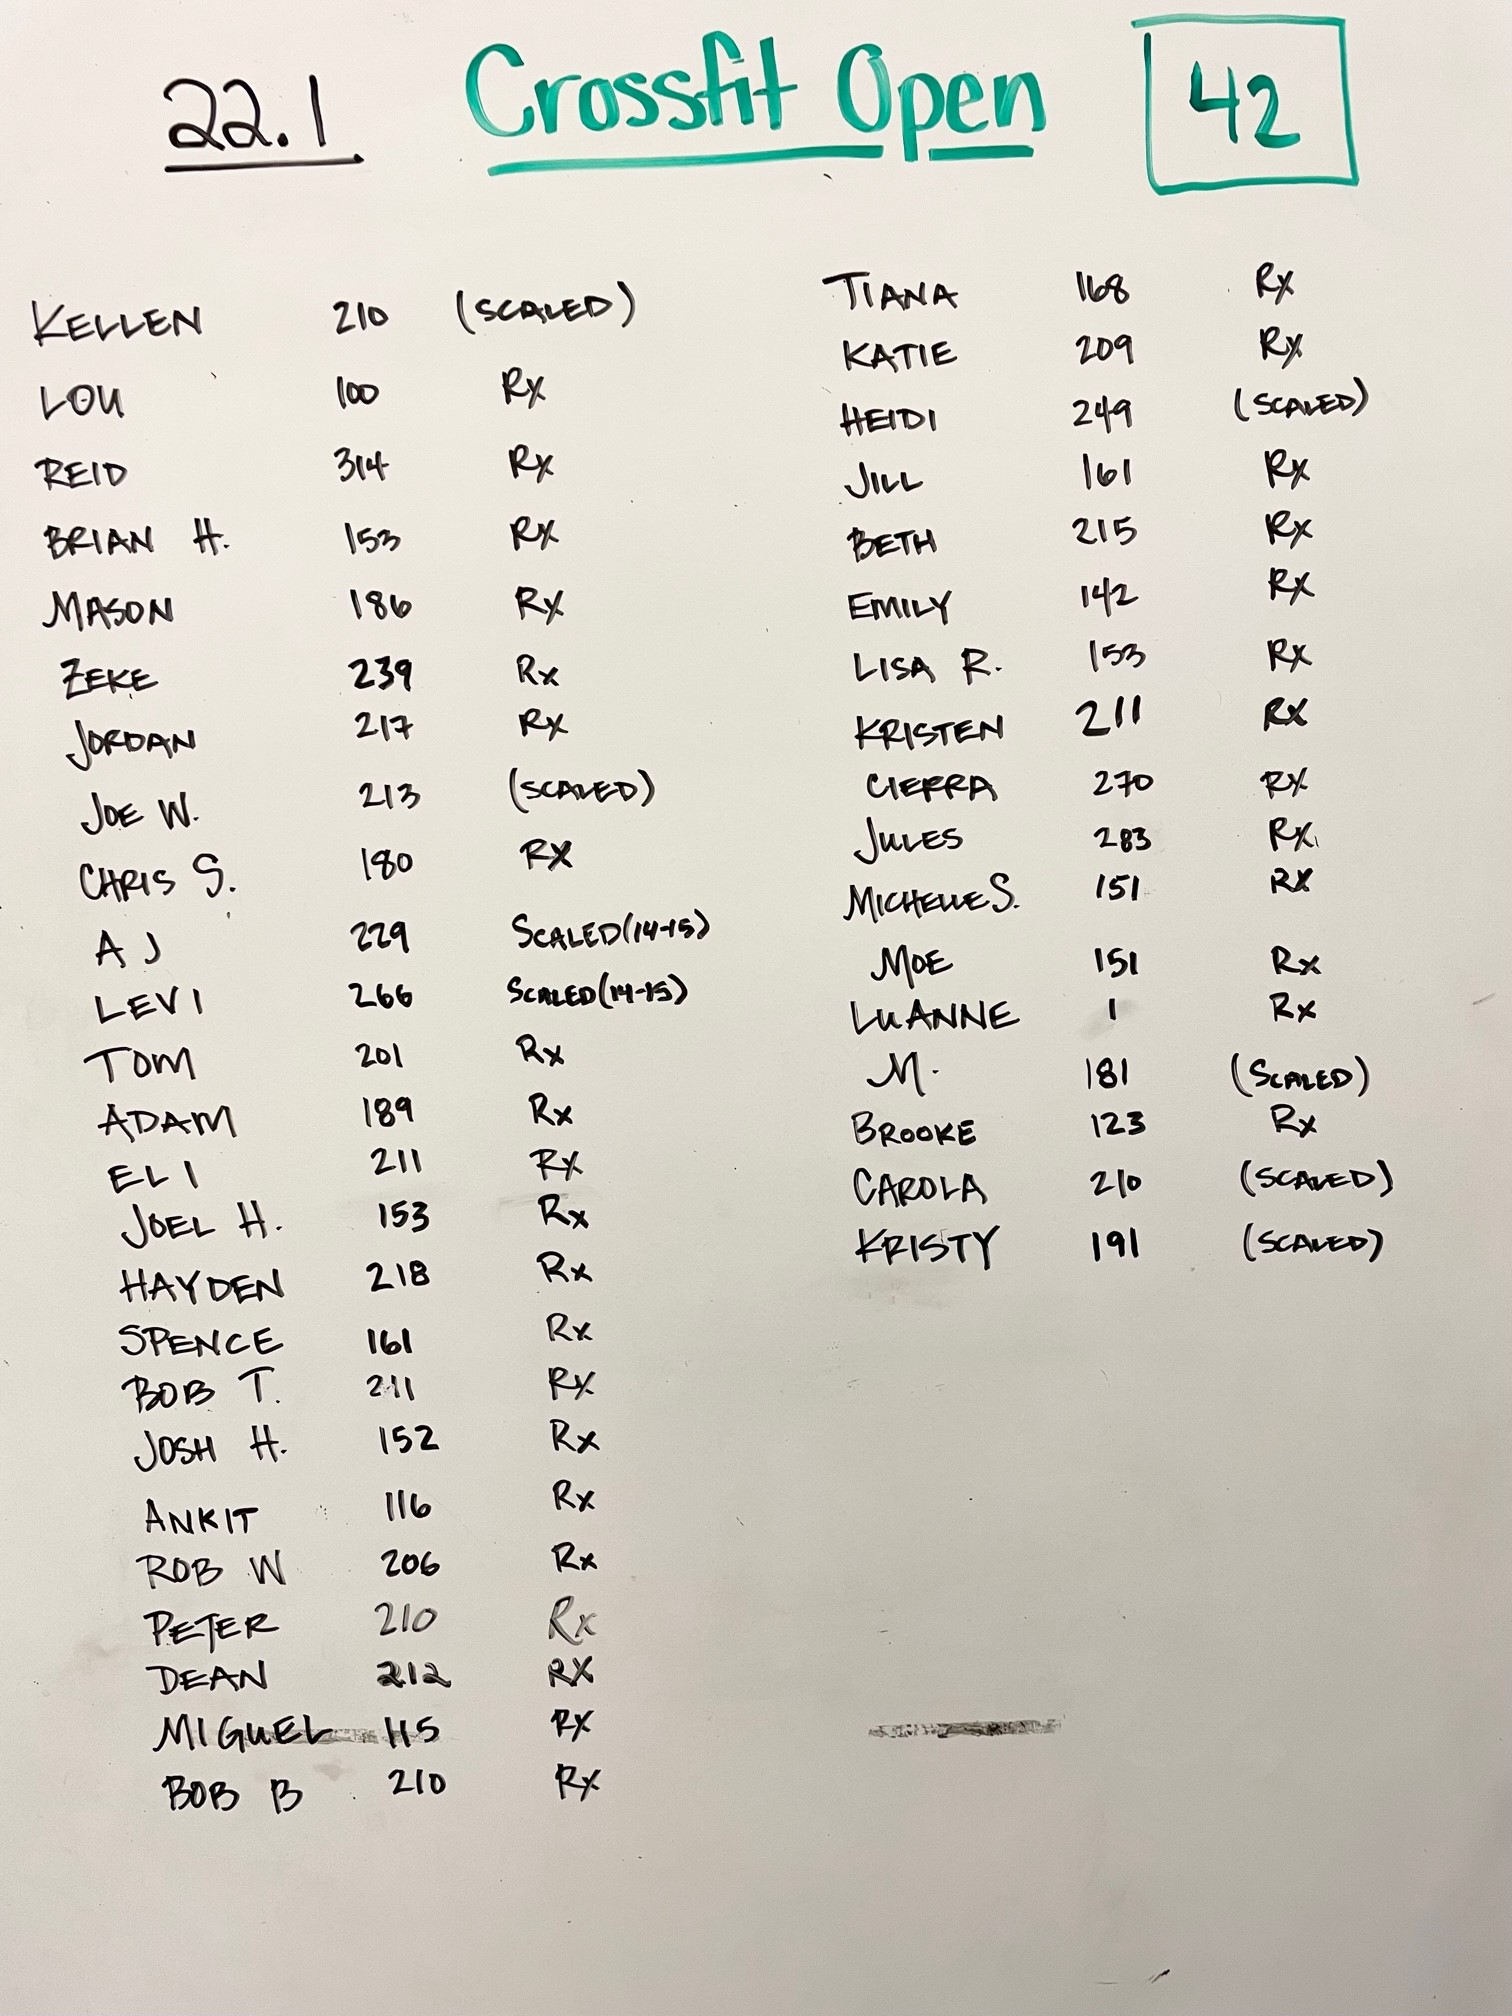 22.1 Crossfit Open 42
KELLEN 210 (SCALED)
LOU 100 Rx
REID 314 Rx
BRIAN H. 153 Rx
MASON 186 Rx
ZEKE 239 Rx
JORDAN 217 Rx
JOE W. 213 (SCALED)
CHRIS S. 180 RX
AJ 229 SCALED(14-15)
LEVI 266 SCALED(14-15)
TOM 201 Rx
ADAM 189 Rx
ELI 211 Rx
JOEL H. 153 Rx
HAYDEN 218 Rx
SPENCE 161 Rx
BOB T. 211 Rx
JOSH H. 152 Rx
ANKIT 116 Rx
ROB W 206 Rx
PETER 210 Rx
DEAN 212 RX
MIGUEL 115 RX
BOB B 210 RX
TIANA 168 Rx
KATIE 209 Rx
HEIDI 249 (SCALED)
JILL 161 Rx
BETH 215 Rx
EMILY 142 Rx
LISA R. 153 Rx
KRISTEN 211 RX
CIERRA 270 RX
JULES 283 Rx
MICHELLE S. 151 RX
MOE 151 Rx
LUANNE 1 Rx
M. 181 (SCALED)
BROOKE 123 Rx
CAROLA 210 (SCALED)
KRISTY 191 (SCALED)